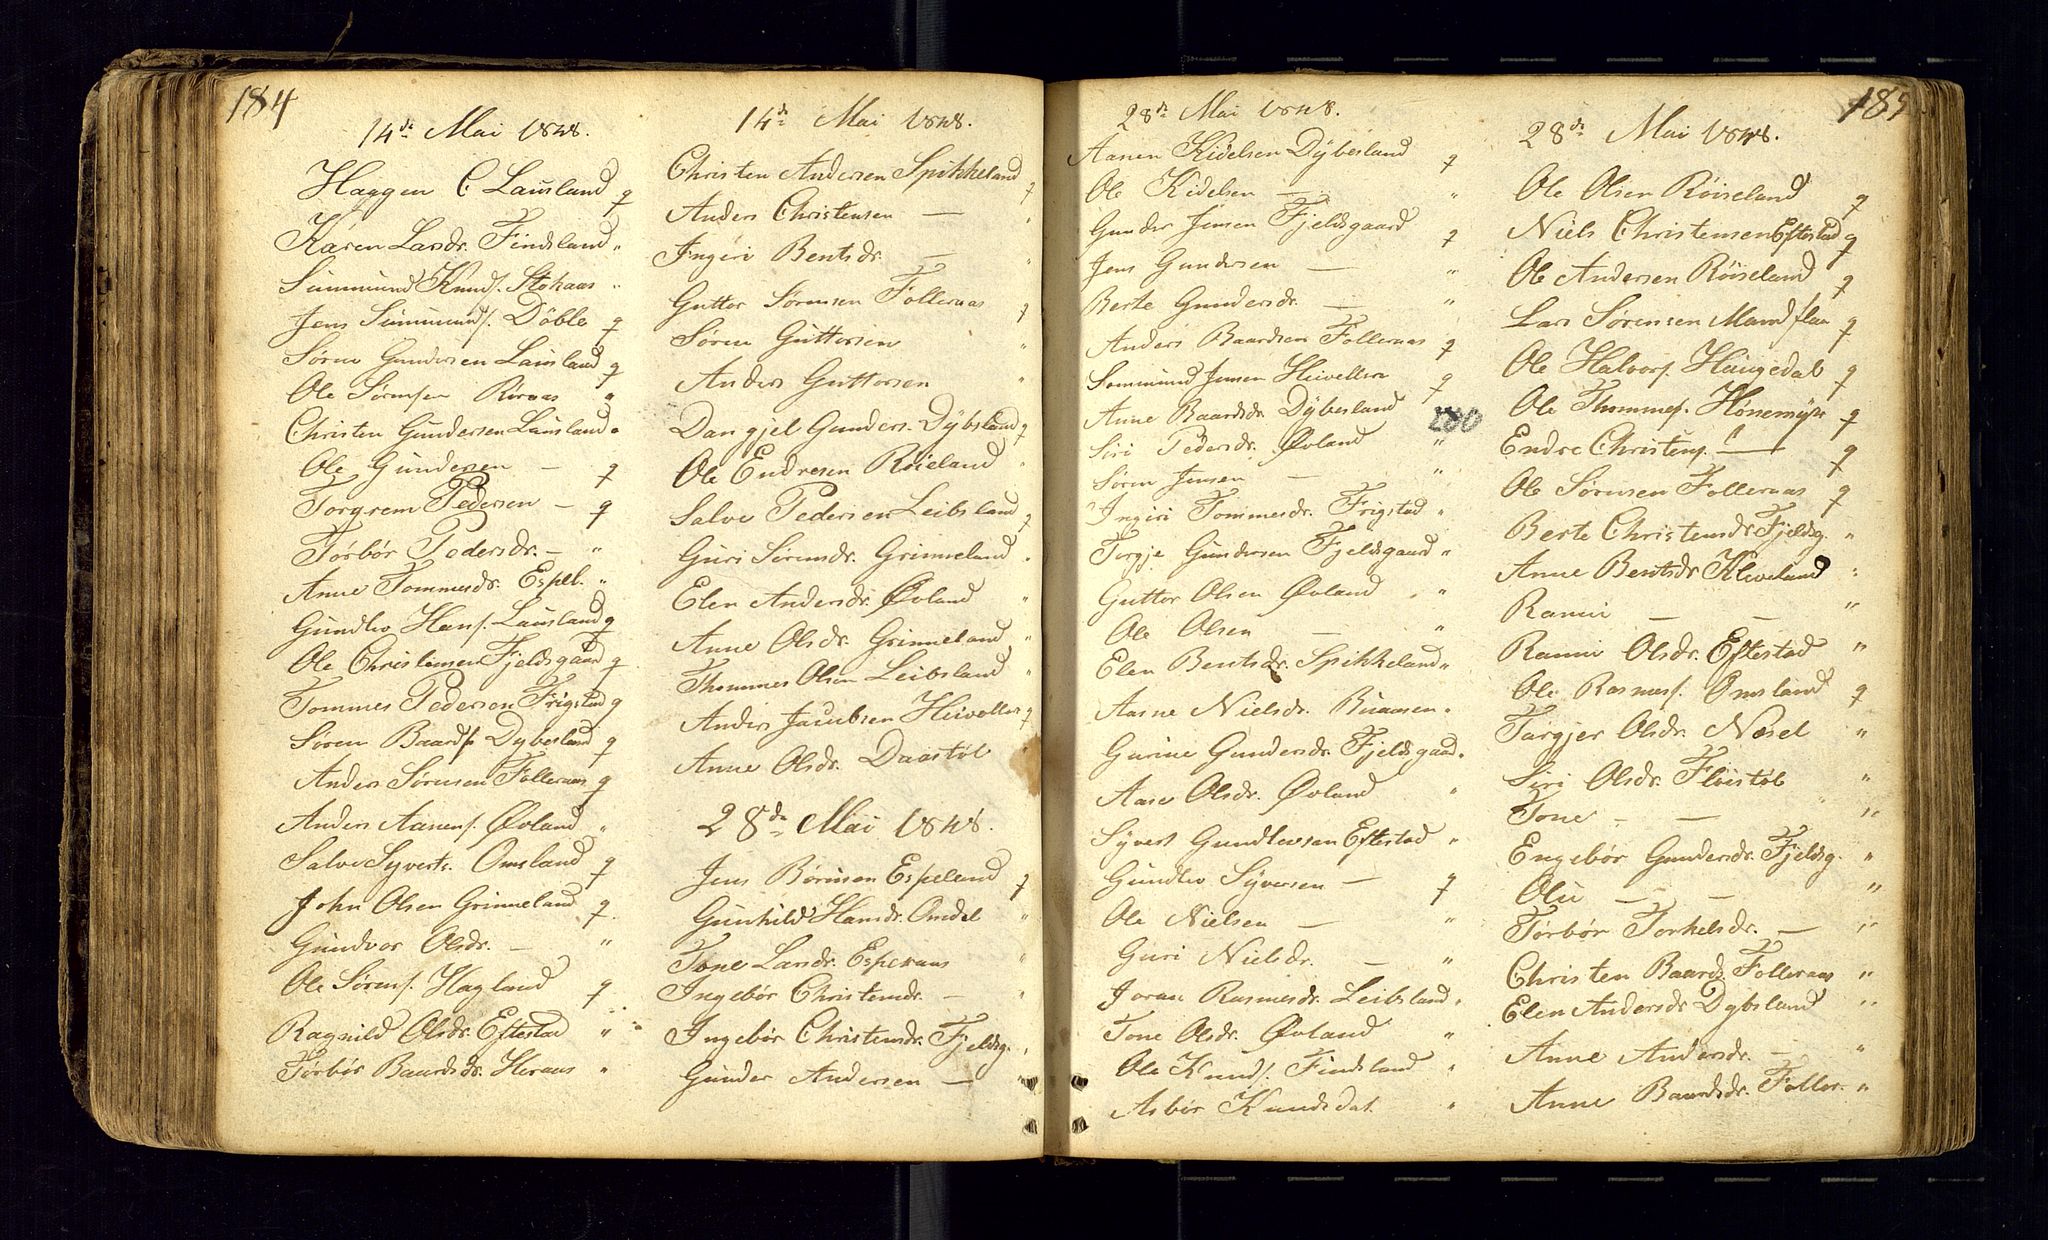 184
14de Mai 1848.
Haggen C. Lauland q
Karen Larsdr. Findsland "
Sunmund Knuds. Stokaas "
Jens Sunmunds. Döble q
Søren Gundersen Lausland q
Ole Sørensen Røraas "
Christen Gundersen Lausland "
Ole Gundersen — q
Torgrem Pedersen — q
Torbør Pedersdr. — "
Anne Tommesdr. Espel. "
Gundlev Hans. Lausland q
Ole Christensen Fjeldsgaard q
Tommes Pedersen Frigstad q
Søren Baards. Dybesland q
Anders Sørensen Folleraas q
Anders Aanens. Øvland "
Salve Syverts. Omsland q
John Olsen Grinneland q.
Gundvor Olsdr. — "
Ole Sørens. Hagland q
Ragnild Olsdr. Eftestad "
Torbør Baardsdr. Heraas "
14de Mai 1848.
Christen Andersen Spikkeland q
Anders Christensen — "
Ingeri Bentsdr. — "
Guttor Sørensen Folleraas q
Søren Guttorsen "
Anders Guttorsen "
Dangjel Gunders. Dybsland q
Ole Endresen Röieland "
Salve Pedersen Leibsland q
Guri Sørensdr. Grinneland "
Elen Andersdr. Øvland "
Anne Olsdr. Grinneland "
Thommes Olsen Leibsland "
Anders Jacobsen Heivollen q
Anne Olsdr. Daastöl
28de Mai 1848.
Jens Börresen Espeland q
Gunhild Hansdr. Omdal "
Tone Larsdr. Esperaas "
Ingebör Christensdr. — "
Ingebör Christensdr. Fjeldsg. "
Gunder Andersen — "
28de Mai 1848.
Aanen Kidelsen Dybesland q
Ole Kidelsen — "
Gunder Jensen Fjeldsgaard q
Jens Gundersen — "
Berte Gundersdr. — "
Anders Baardsen Folleraas q
Sommund Jensen Heivollen q
Anne Baardsdr. Dybesland "
200
Siri Pedersdr. Øvland "
Søren Jensen — "
Ingiri Tommesdr. Frigstad "
Torgje Gundersen Fjeldsgaard "
Guttor Olsen Øvland "
Ole Olsen — "
Elen Bentsdr. Spikkeland "
Aasne Nielsdr. Buaasen "
Gurine Gundersdr. Fjeldsgaad "
Aase Olsdr. Øvland "
Syvert Gundlevsen Eftestad "
Gundlev Syversen — q
Ole Nielsen — "
Guri Nielsdr. — "
Joran Rasmesdr. Leibsland "
Tone Olsdr. Øvland "
Ole Knuds. Findsland "
Asbör Knudsdat. "
185
28de Mai 1848.
Ole Olsen Röiseland q
Niels Christensen Eftestad q
Ole Andersen Röiseland q
Lars Sørensen Mandflaa q
Ole Halvors. Haugedal q
Ole Thommes. Hönemyr q
Endre Christens. — q
Ole Sørensen Folleraas q
Berte Christensdr. Fjeldsg. "
Anne Bentsdr. Kleveland "
Ranni — — "
Ranni Olsdr. Eftestad "
Ole Rasmus. Omsland q
Targjer Olsdr. Nesel "
Siri Olsdr. Flöistöl "
Tone — — "
Engebör Gundersdr. Fjeldsg. "
Olu — — "
Torbör Torkelsdr. — "
Christen Baards. Folleraas "
Elen Andersdr. Dybsland "
Anne Andersdr. — "
Anne Baardsdr. Foller. "